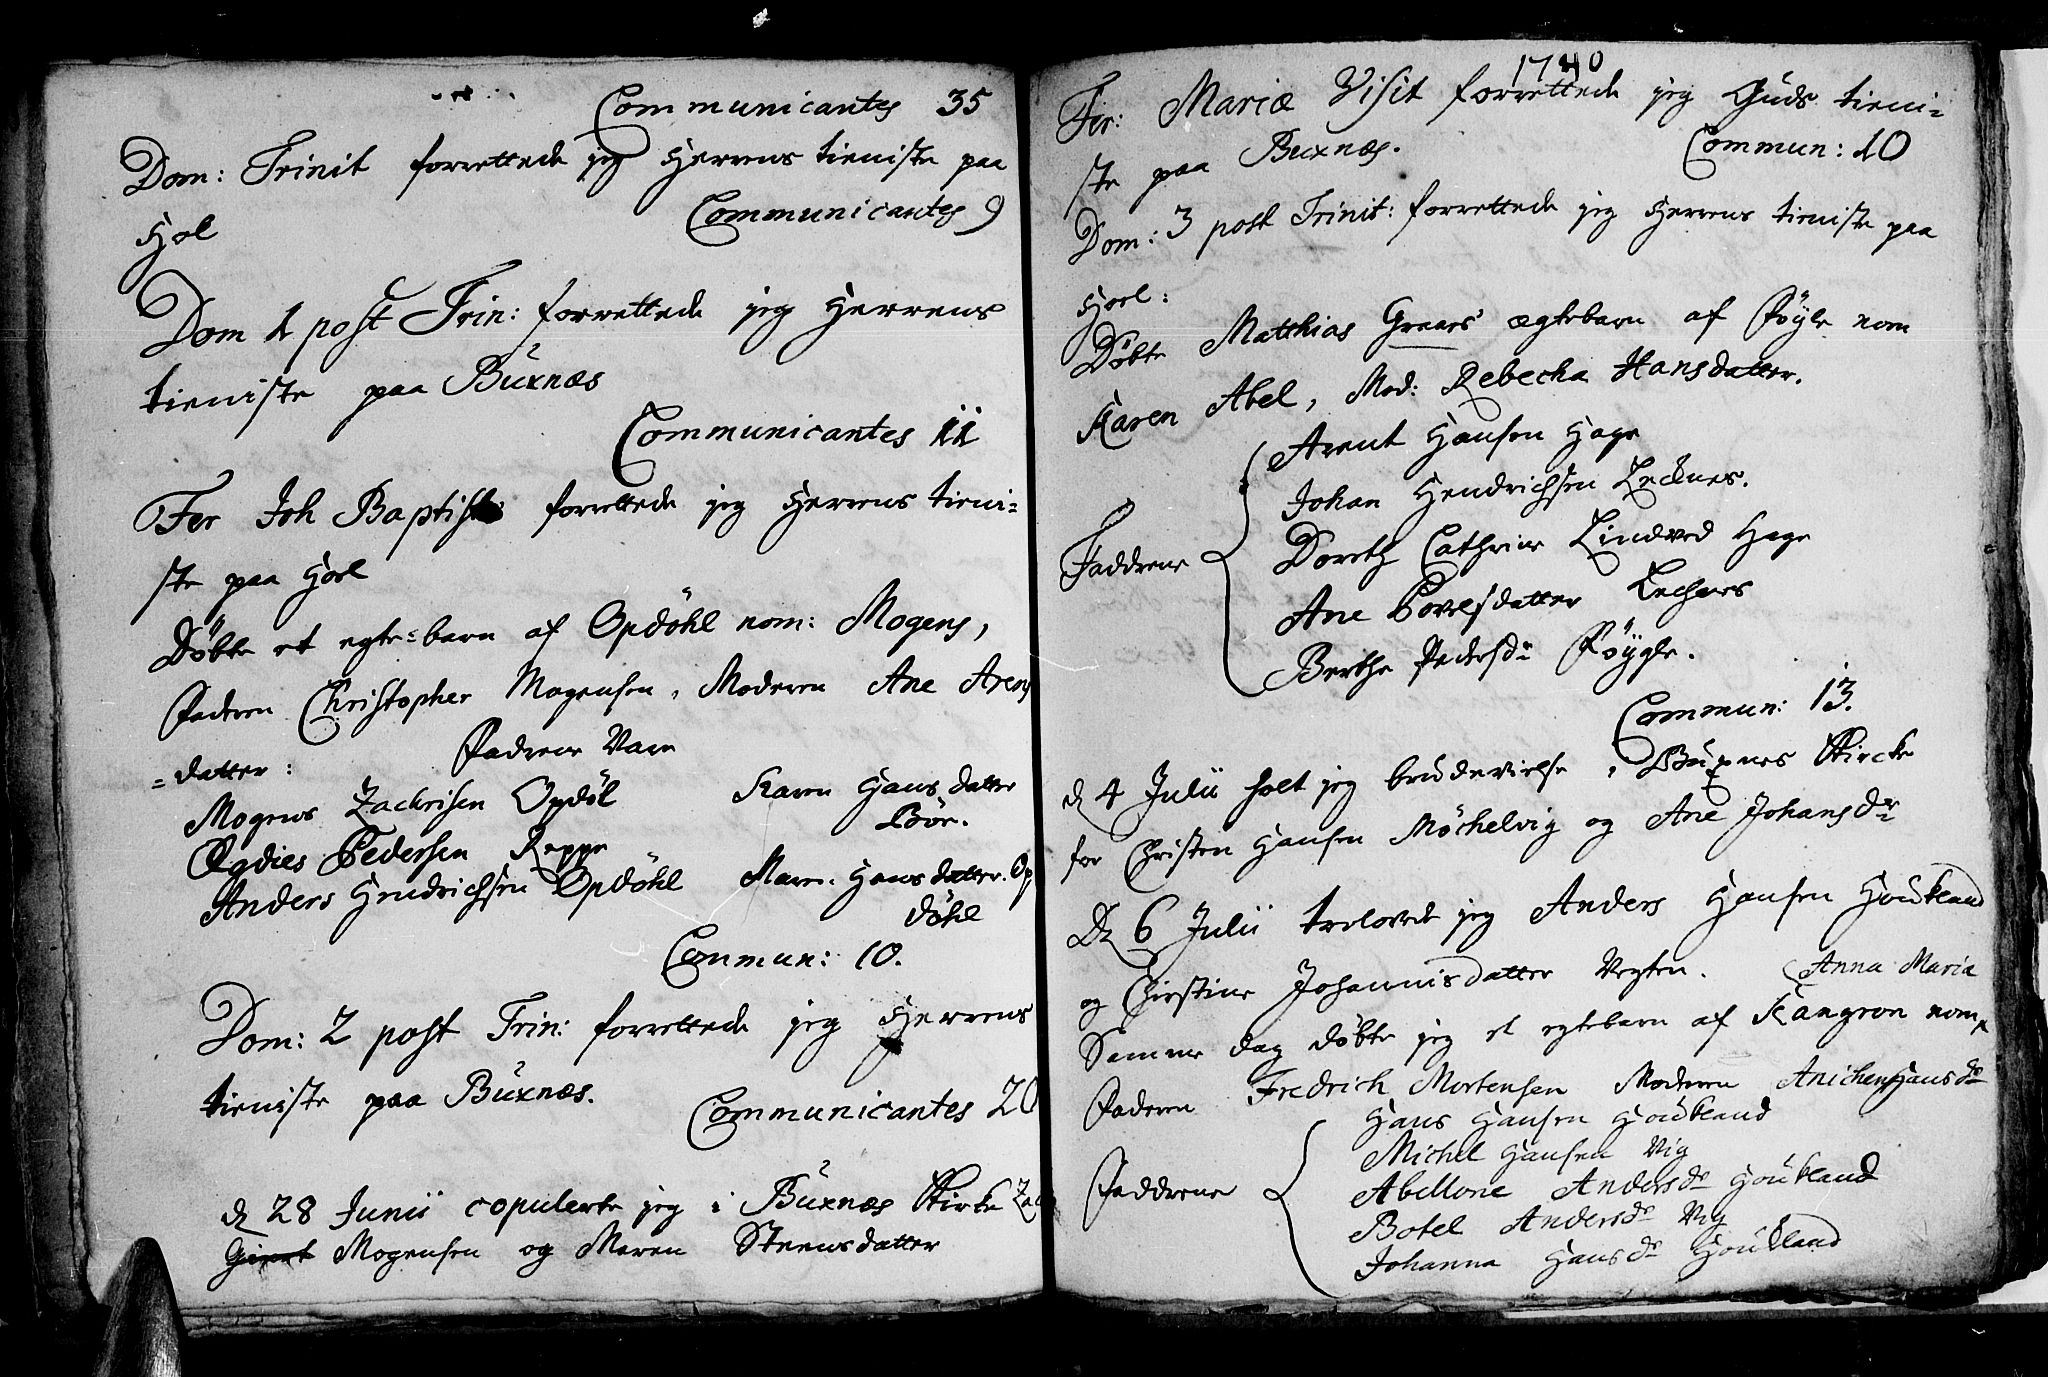 Communicantes 35
Dom: Trinit forrettede jeg Herrens tieniste paa
Hol
Communicantes 9
Dom 1 post Trin: forrettede jeg Herrens
tieniste paa Buxnæs
Communicantes 11
Fer Joh Baptist: forrettede jeg Herrens tieni=
ste paa Hoel
Døbte et egte=barn af Opdöhl nom: Mogens,
Faderen Christopher Mogensen, Moderen Ane Arens
=datter:
Fadrene Vare
Mogens Zachrisen Opdöl
Karen Hans datter
Bör.
Ægdies Pedersen Reppe
Anders Hendrichsen Opdöhl
Maren Hans datter. Op
döhl
Commun: 10.
Dom: 2 post Trin: forrettede jeg Herrens
tieniste paa Buxnæs.
Communicantes 20
d 28 Junii copulerte jeg i Buxnæs Kirke Zac
Mogensen og Maren Steensdatter
1740
Fer: Mariæ Visit forrettede jeg Guds tieni=
ste paa Buxnæs.
Commun: 10
Dom: 3 post Trinit: forrettede jeg Herrens tieniste paa
Hoel:
Döbte Matthias Graaes ægtebarn af Föyle nom
Karen Abel, Mod: Rebecha Hansdatter.
Faddrene
Arent Hansen Hage
Johan Hendrichsen Lecknes.
Doroth Cathrine Lindved Hage
Ane Povelsdatter Lechnes
Berthe Pedersdr Föygle.
Commun: 13.
d 4 Julii holt jeg brudevielse i Buxnes Kircke
for Christen Hansen Möchelvig og Ane Johansdr
D 6 Julii trolovede jeg Anders Hansen Houkland
og Chirstine Johannisdatter Vegten.
Anna Maria
Samme dag döbte jeg et egtebarn af Kangron nom
Faderen Fredrich Mortensen Moderen Anichen Hansdr
Faddrene
Hans Hansen Houkland
Michel Hansen Vig
Abellone Andersdr Houkland
Botel Andersdr Vig
Johanna Hansdr Houkland